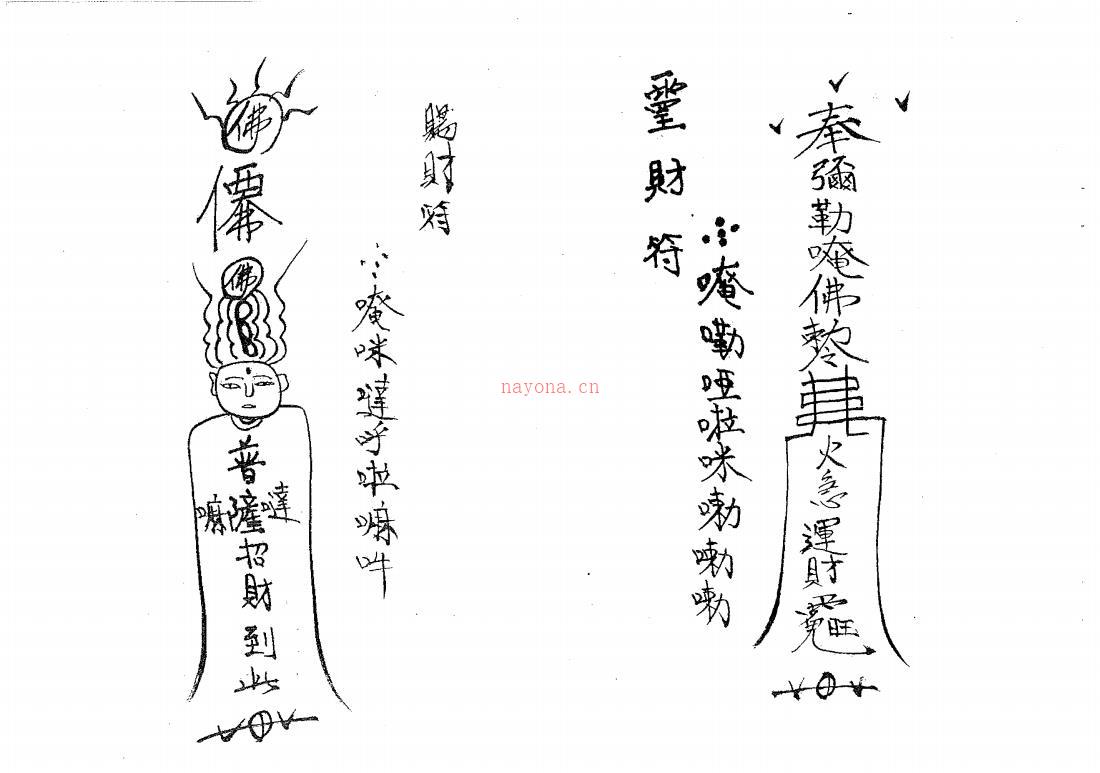 奉彌勒唵佛敕
火急運財
靈財符
唵嘞啞啦咪嘞嘞嘞
nayona.cn
賜財符
唵咪噠呼啦嘛吽
佛
佛
普薩招財到此
嘛
噠